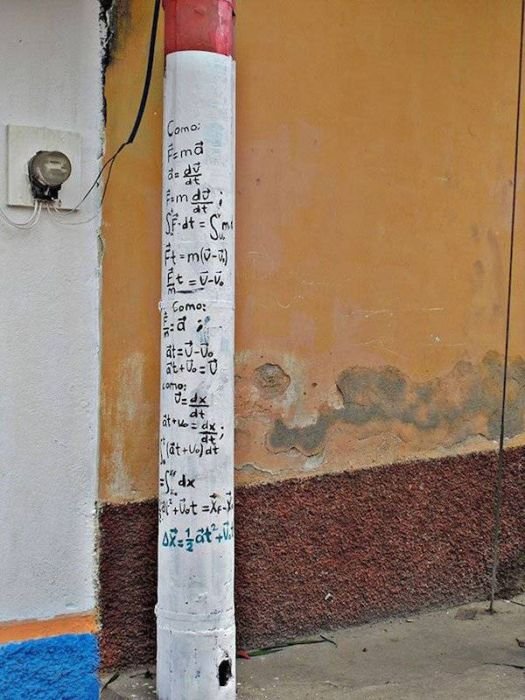 Como:
F⃗=ma⃗
a⃗=dv⃗/dt
F⃗=m dv⃗/dt ;
∫F⃗·dt=∫m
F⃗t=m(v⃗-v⃗₀)
F⃗/m t=v⃗-v⃗₀
Como:
=a⃗ ;
a⃗t=v⃗-v⃗₀
a⃗t+v⃗₀=v⃗
Como:
v⃗=dx⃗/dt
a⃗t+v₀=dx⃗/dt ;
∫(a⃗t+v⃗₀)dt
=∫dx
t²+v⃗₀t=x⃗f-x⃗
Δx⃗=½a⃗t²+v⃗₀t